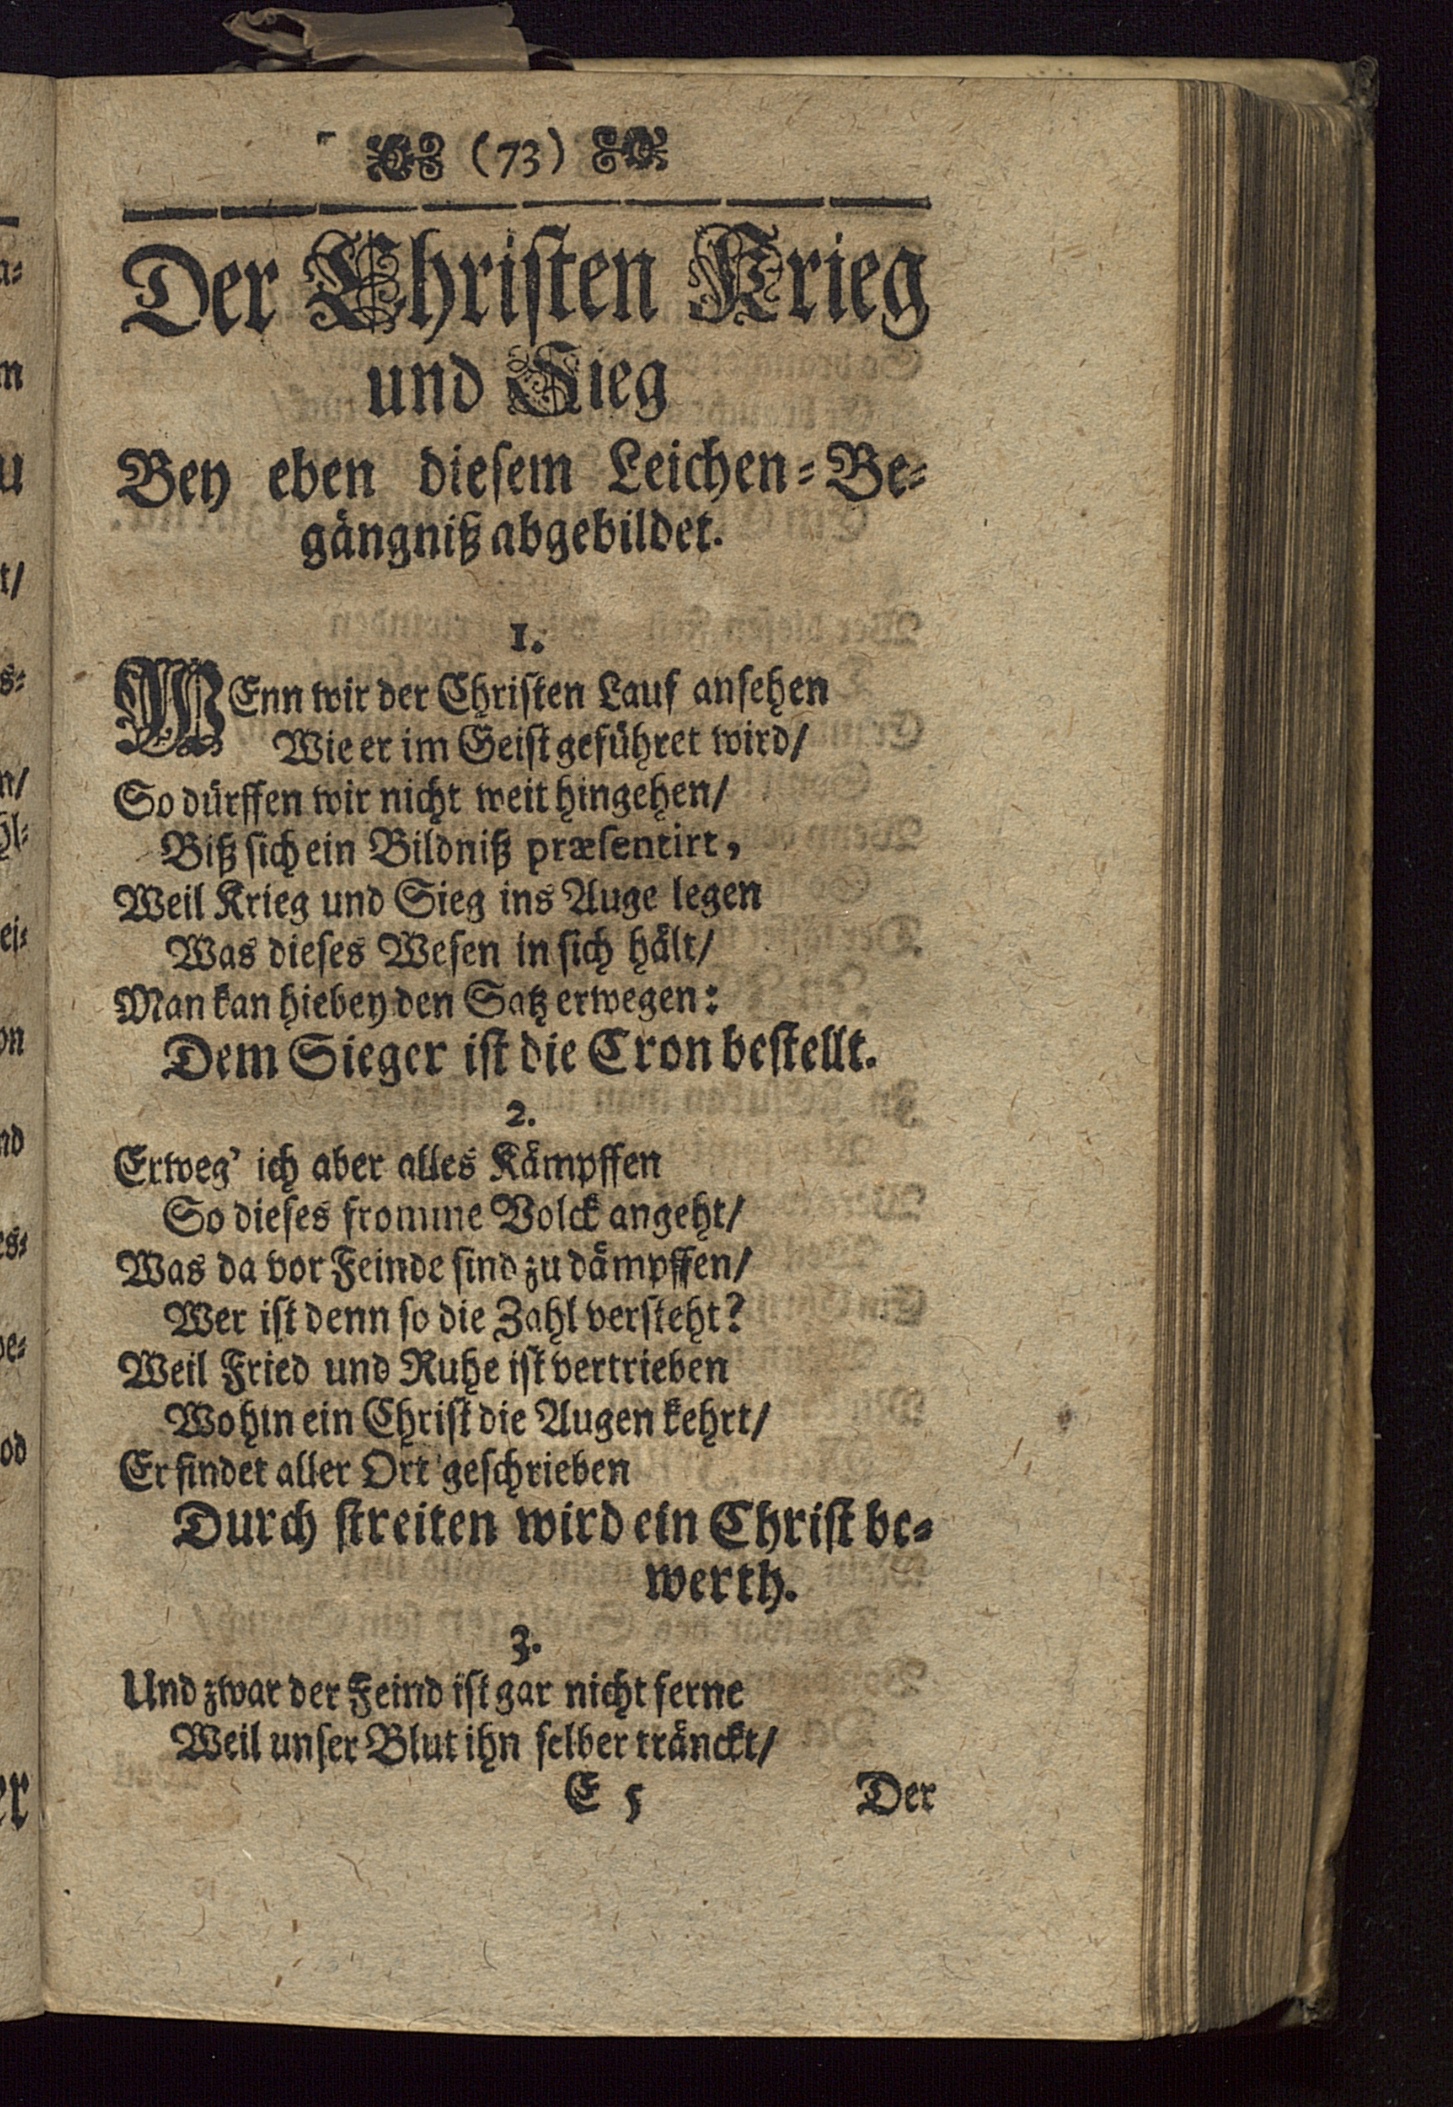 (73)
Der Christen Krieg
und Sieg
Bey eben diesem Leichen-Be-
gängniß abgebildet.
1.
WEnn wir der Christen Lauf ansehen
Wie er im Geist geführet wird/
So dürffen wir nicht weit hingehen/
Biß sich ein Bildniß præsentirt,
Weil Krieg und Sieg ins Auge legen
Was dieses Wesen in sich hält/
Man kan hiebey den Satz erwegen:
Dem Sieger ist die Cron bestellt.
2.
Erweg' ich aber alles Kämpffen
So dieses fromme Volck angeht/
Was da vor Feinde sind zu dämpffen/
Wer ist denn so die Zahl versteht?
Weil Fried und Ruhe ist vertrieben
Wohin ein Christ die Augen kehrt/
Er findet aller Ort geschrieben
Durch streiten wird ein Christ be-
werth.
3.
Und zwar der Feind ist gar nicht ferne
Weil unser Blut ihn selber tränckt/
E 5 Der